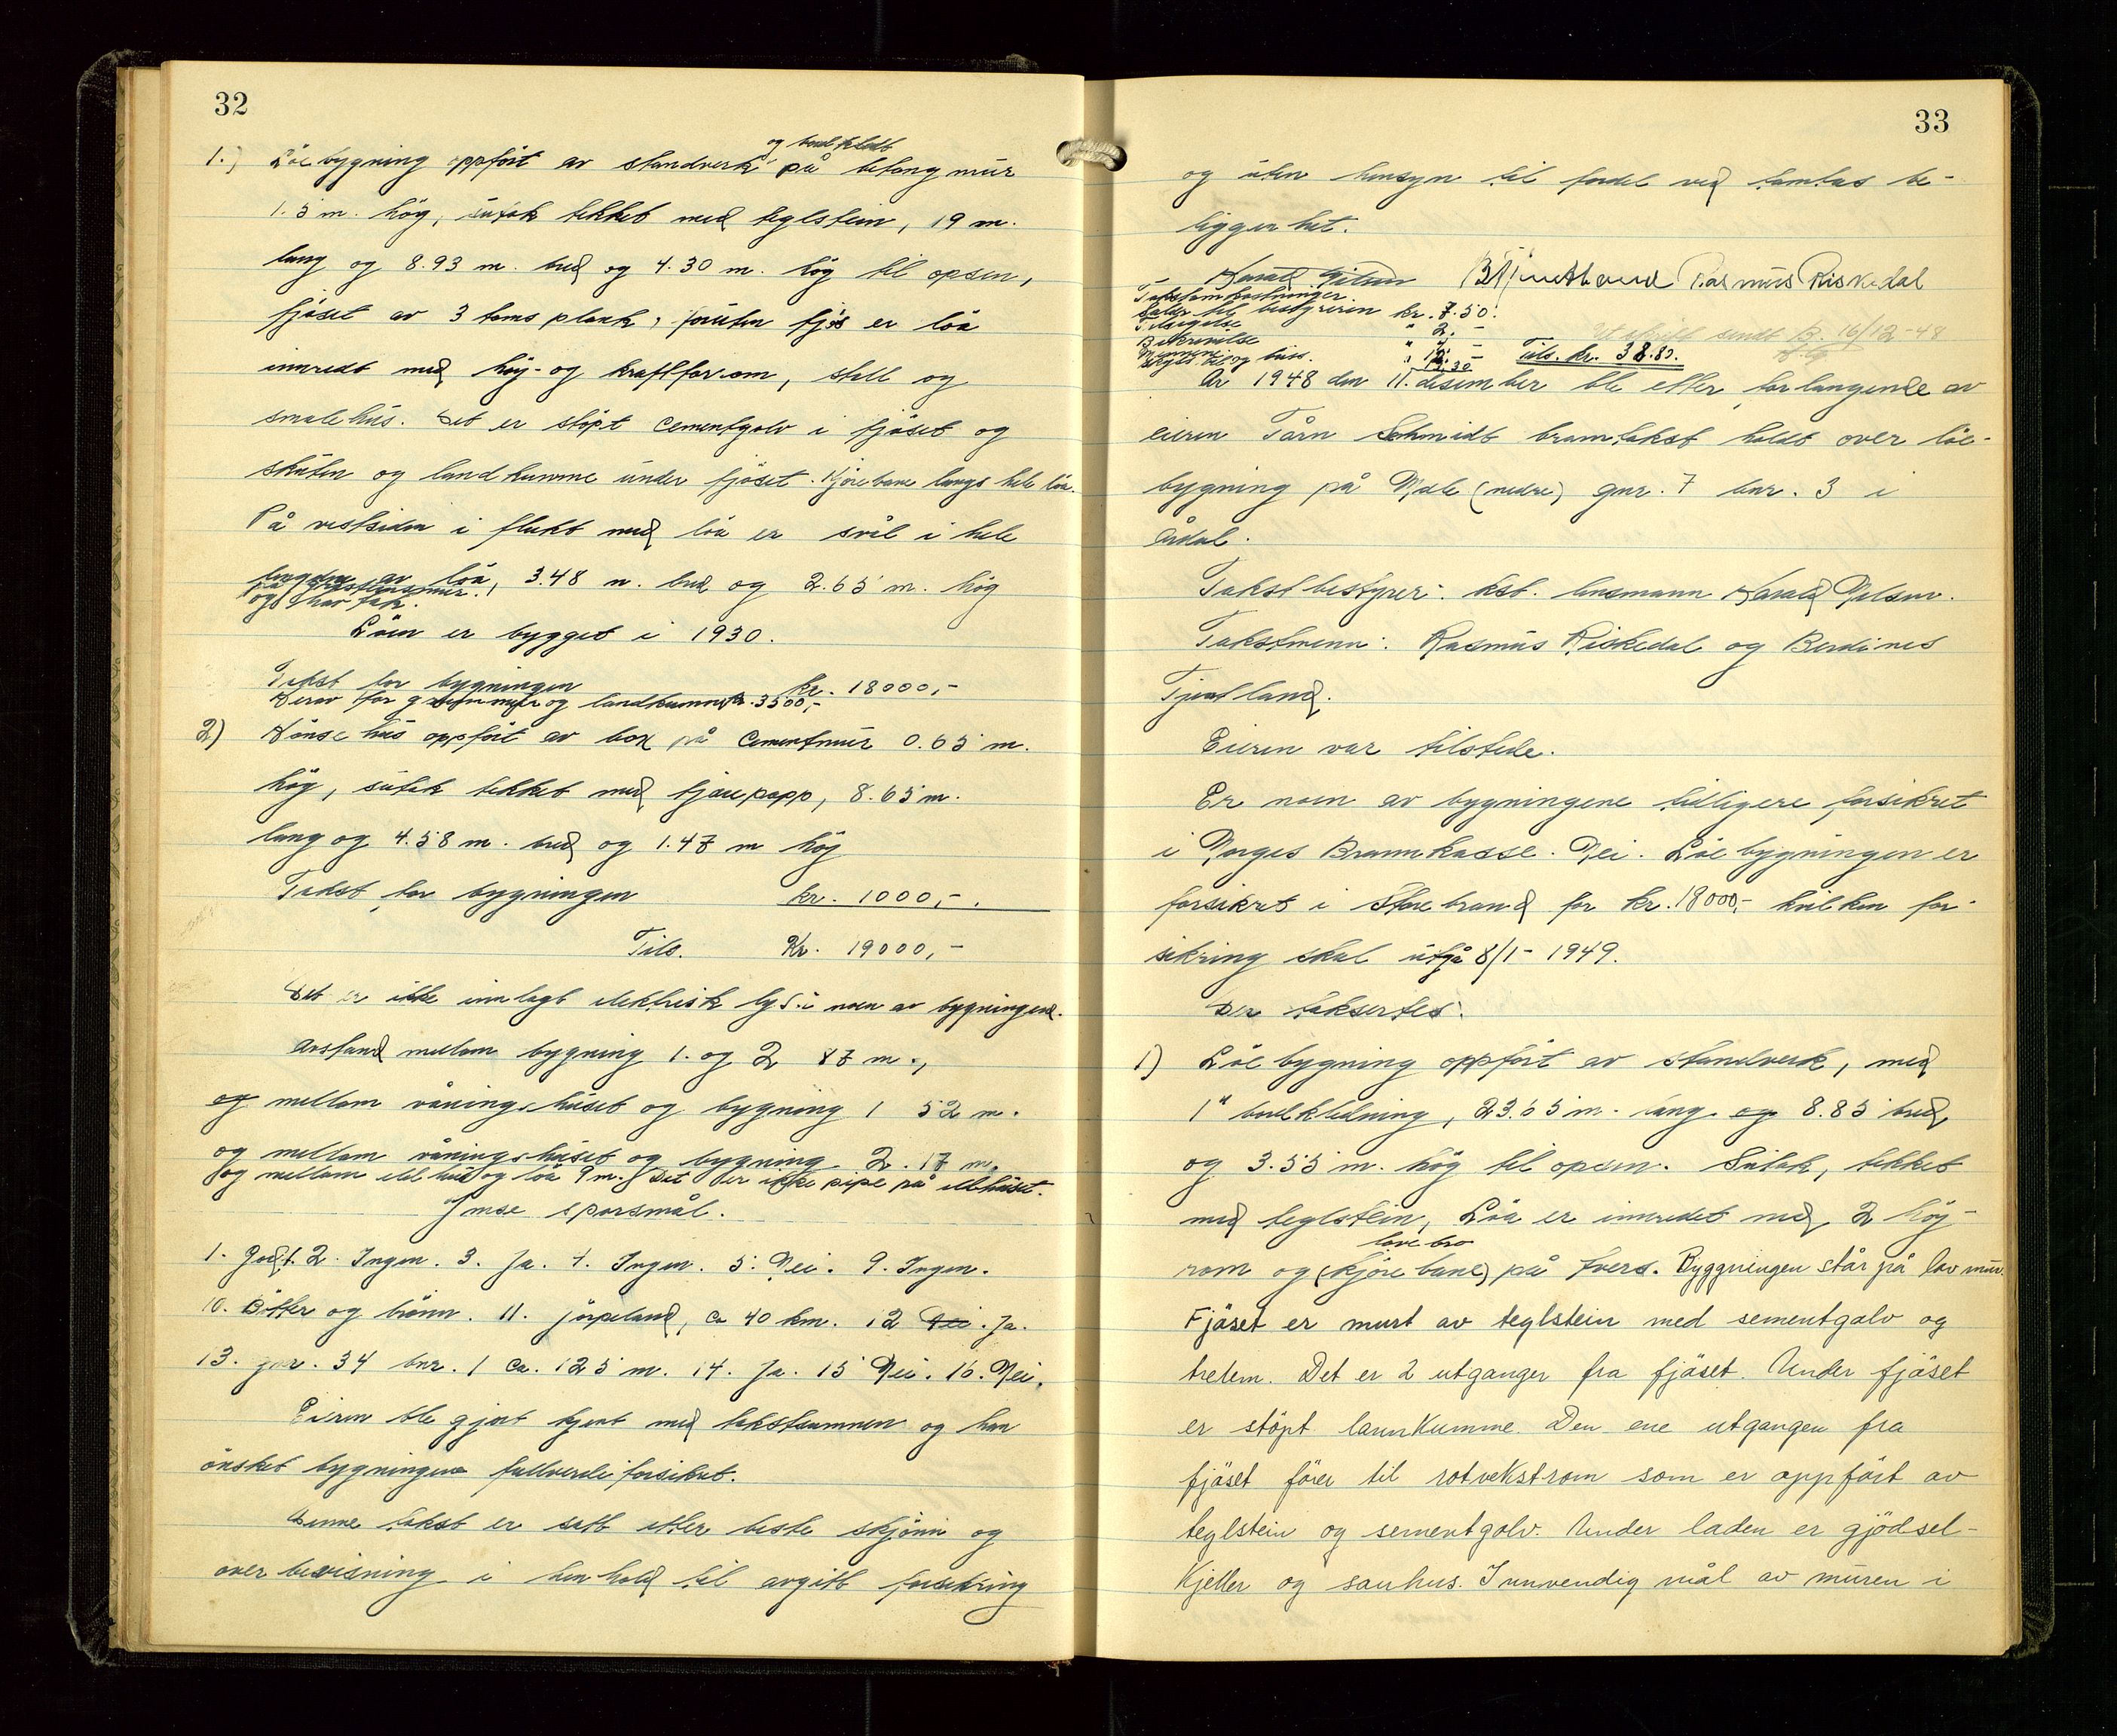 32
og bordkledt
1.) Löebygning oppfört av standverk på betong mur
1.5 m. hög, sutak tekket med teglstein, 19 m.
lang og 8.93 m. bred og 4.30 m. hög til opsen,
fjöset av 3 toms plank, foruten fjös er löa
innredt med höy- og kraftforrom, stall og
smalehus. Det er stöpt cementgolv i fjöset og
skuten og landkumme under fjöset. Kjörebane langs hele löa.
På vestsiden i flukt med löa er svål i hele
lengden av löa, 3.48 m. bred og 2.65 m. hög
på gråsteinsmur.
og har tak.
Löen er bygget i 1930.
Takst for bygningen kr. 18000,-
Derav for grunnmur og landkumme kr. 3500,-
2) Hönsehus oppfört av bord på cementmur 0.65 m.
hög, sutak tekket med tjærepapp, 8.65 m.
lang og 4.58 m. bred og 1.47 m hög
Takst for bygningen kr. 1000,-.
Tils. Kr. 19000,-
Det er ikke innlagt elektrisk lys i noen av bygningene.
Avstand mellom bygning 1. og 2 87 m.,
og mellom våningshuset og bygning 1 52 m.
og mellom våningshuset og bygning 2. 17 m.
og mellom eldhus og löa 9 m. Det er ikke pipe på eldhuset.
Ymse spörsmål.
1. Godt. 2. Ingen. 3. Ja. 4. Ingen. 5. Nei. 9. Ingen.
10. Bötter og brönn. 11. Jörpeland, ca 40 km. 12 Nei. Ja.
13. gnr. 34 bnr. 1 ca. 125 m. 14. Ja. 15 Nei. 16. Nei.
Eieren ble gjort kjent med takstsummen og han
önsket bygningene fullverdiforsikret.
Denne takst er satt etter beste skjönn og
overbevisning i henhold til avgitt forsikring
33
og uten hensyn til fordel ved tomtas be-
liggenhet.
Harald Nilsen B Tjentland Rasmus Riskedal
Takstomkostninger
Salær til bestyreren kr. 7.50.
Tilsigelse " 2. -
Beskrivelse
Mennene
Skyss bil og buss. 19.30 Tils. kr. 38.80.
Utskrift sendt B. 16/12-48
År 1948 den 11. desember ble etter forlangende av
eieren Tårn Schmidt branntakst holdt over löe-
bygning på Mæle (nedre) gnr. 7 bnr. 3 i
Årdal.
Takstbestyrer: kst. lensmann Harald Nilsen.
Takstmenn: Rasmus Riskedal og Berdines
Tjentland.
Eieren var tilstede.
Er noen av bygningene tidligere forsikret
i Norges Brannkasse. Nei. Löebygningen er
forsikret i Storebrand for kr. 18000,- hvilken for-
sikring skal utgå 8/1-1949.
Der taksertes:
1) Löebygning oppfört av standverk, med
1" bordkledning, 23.65 m. lang og 8.85 bred,
og 3.55 m. hög til opsen. Sutak, tekket
med teglstein, Löa er innredet med 2 höy-
låvebro
rom og (kjörebane) på tvers. Byggningen står på lav mur.
Fjöset er murt av teglstein med sementgolv og
trelem. Det er 2 utganger fra fjöset. Under fjöset
er stöpt lannkumme. Den ene utgangen fra
fjöset förer til rotvekstrom som er oppfört av
teglstein og sementgolv. Under laden er gjödsel-
kjeller og sauhus. Innvendig mål av muren i